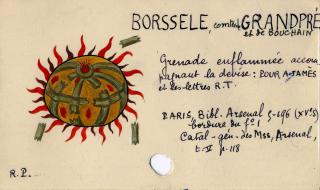 BORSSELE, comte de GRANDPRÉ
et de BOUCHAIN
Grenade enflammée accom
pagnant la devise: POUR A JAMES
et les lettres R.T.
PARIS, Bibl. Arsenal 5-196 (XVᵉ s)
bordure du fº 1
Catal-gén. des Mss, Arsenal,
t. V p. 118
R.P.